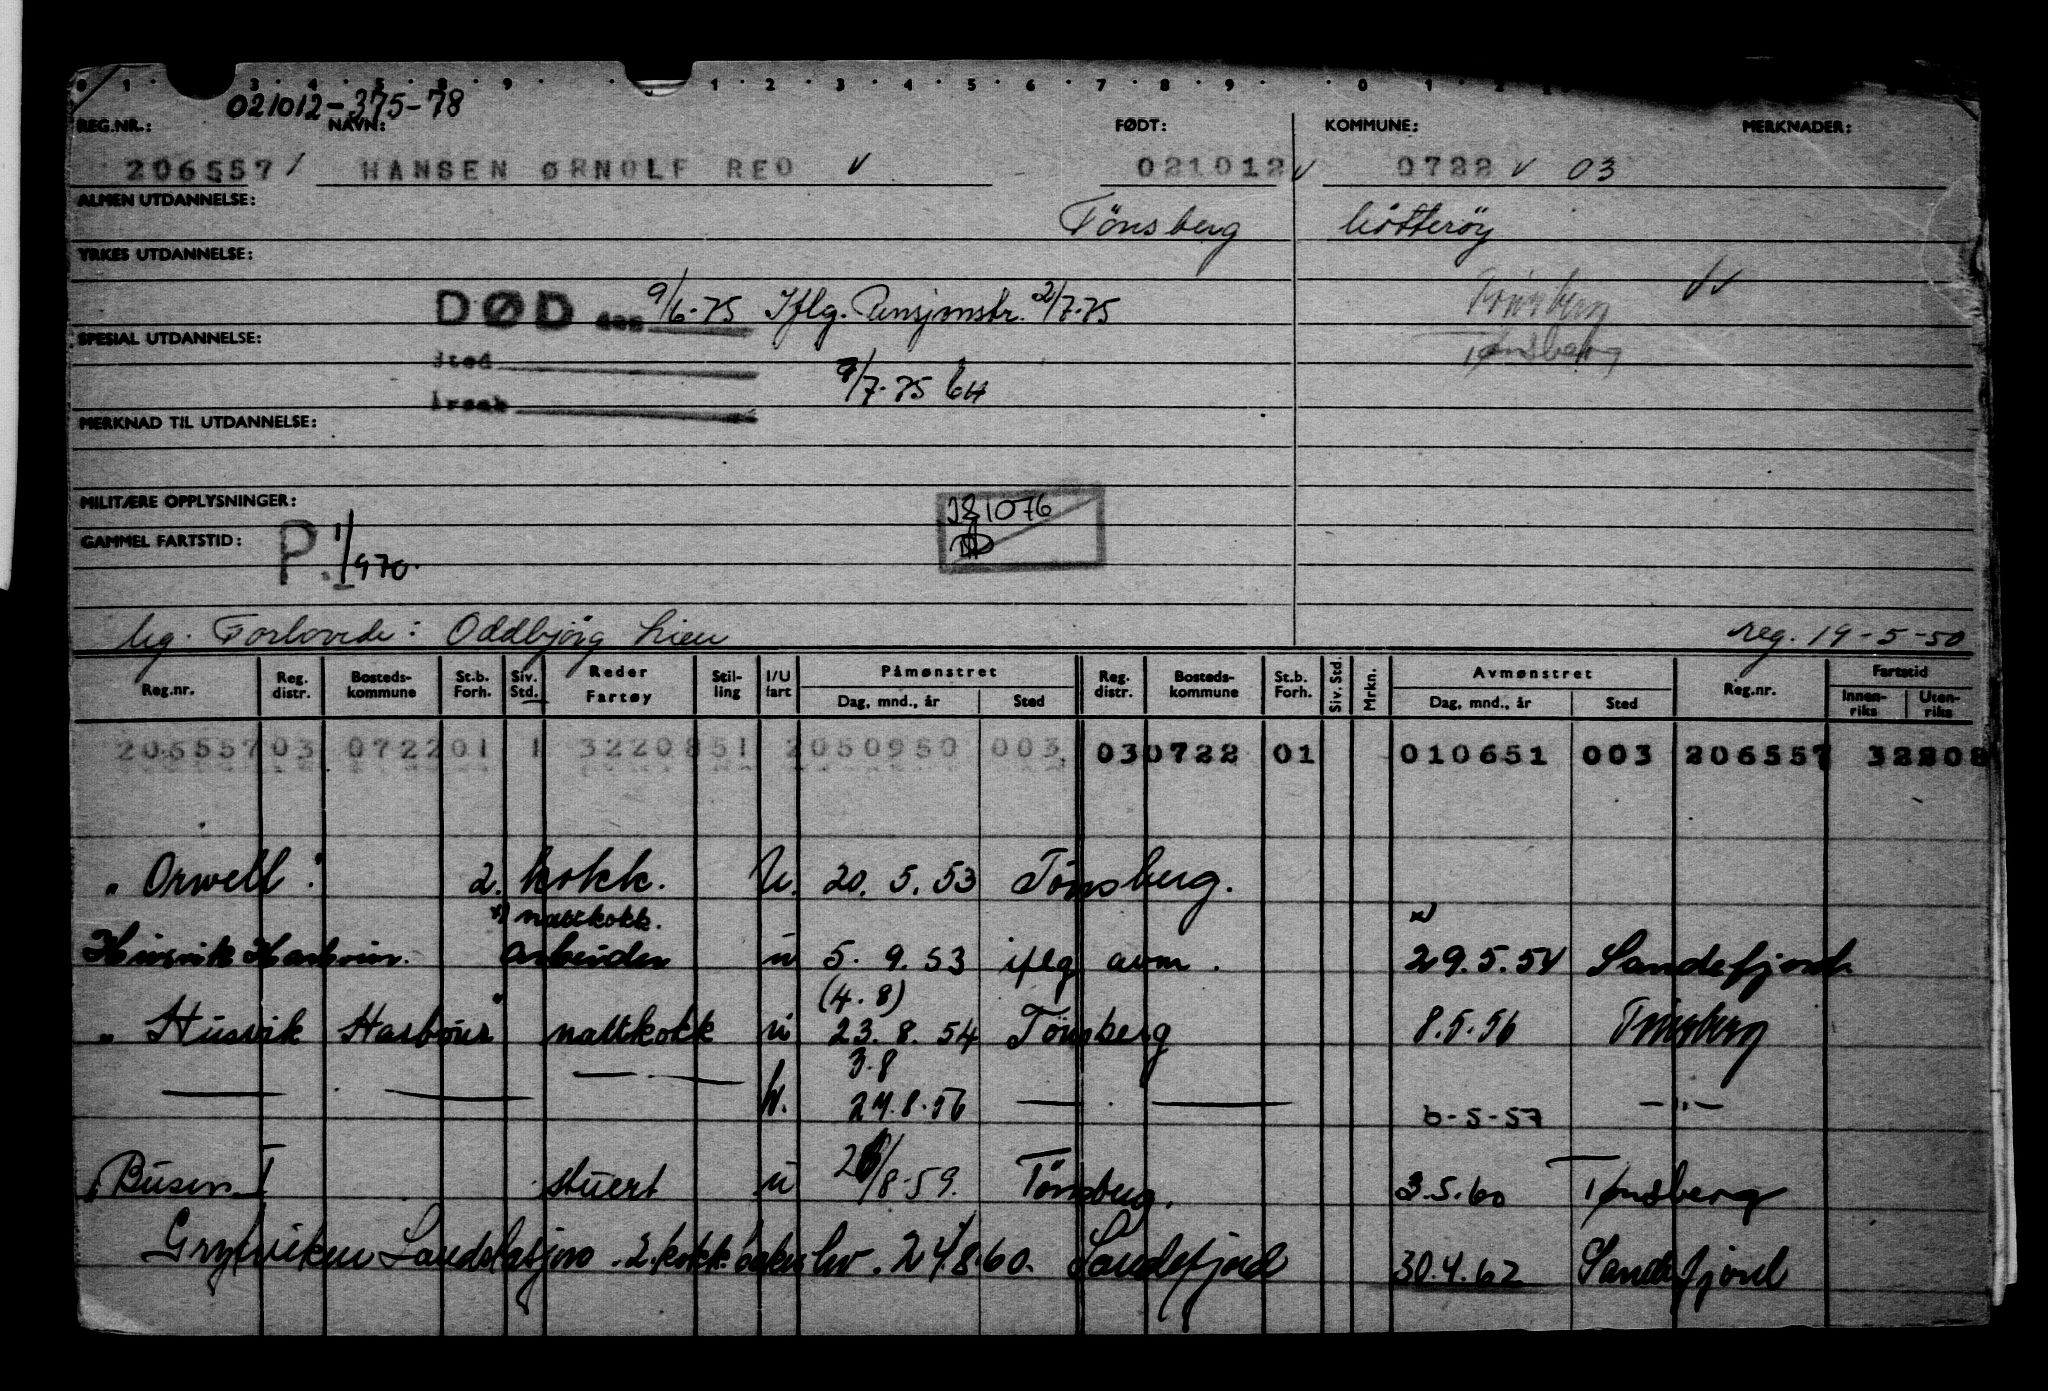 021012-375-78
REG.NR.: NAVN: FØDT: KOMMUNE: MERKNADER:
206557 / HANSEN ØRNULF REO v 021012 v 0722 v 03
ALMEN UTDANNELSE: Tönsberg Nötteröy
YRKES UTDANNELSE:
Tönsberg
DØD den 9/6-75 Iflg. Pensjonstr. 2/7-75
SPESIAL UTDANNELSE: Tønsberg
Sted
9/7-75
Årsak
MERKNAD TIL UTDANNELSE:
MILITÆRE OPPLYSNINGER: 1076
GAMMEL FARTSTID: P. 1/1 970.
Forlovede: Oddbjörg Lien reg. 19-5-50
Reg.nr. Reg. distr. Bosteds-kommune St.b. Forh. Siv. Std. Reder Fartøy Stil-ling I/U fart Påmønstret Dag, mnd., år Sted Reg. distr. Bosteds-kommune St.b. Forh. Siv. Std. Mrkn. Avmønstret Dag, mnd., år Sted Reg.nr. Fartstid Innen-riks Uten-riks
206557 03 0722 01 1 3220851 2050950 003 03 0722 01 010651 003 206557 32208
"Orwell" 2. kokk. U. 20. 5. 53 Tönsberg.
x) nattkokk. x)
Husvik Harbour. arbeider u 5. 9. 53 iflg avm. 29.5.54 Sandefjord
(4. 8)
"Husvik Harbour" nattkokk u 23. 8. 54 Tönsberg 8.5.56 Tönsberg
3.8
— — — U. 24.8.56 — — 6-5-57 —"—
"Busen I stuert u 8-59. Tönsberg. 3.5.60 Tønsberg
Grytviken Landstasjon. 2. kokk. hv. 24/8.60. Sandefjord 30.4.62 Sandefjord